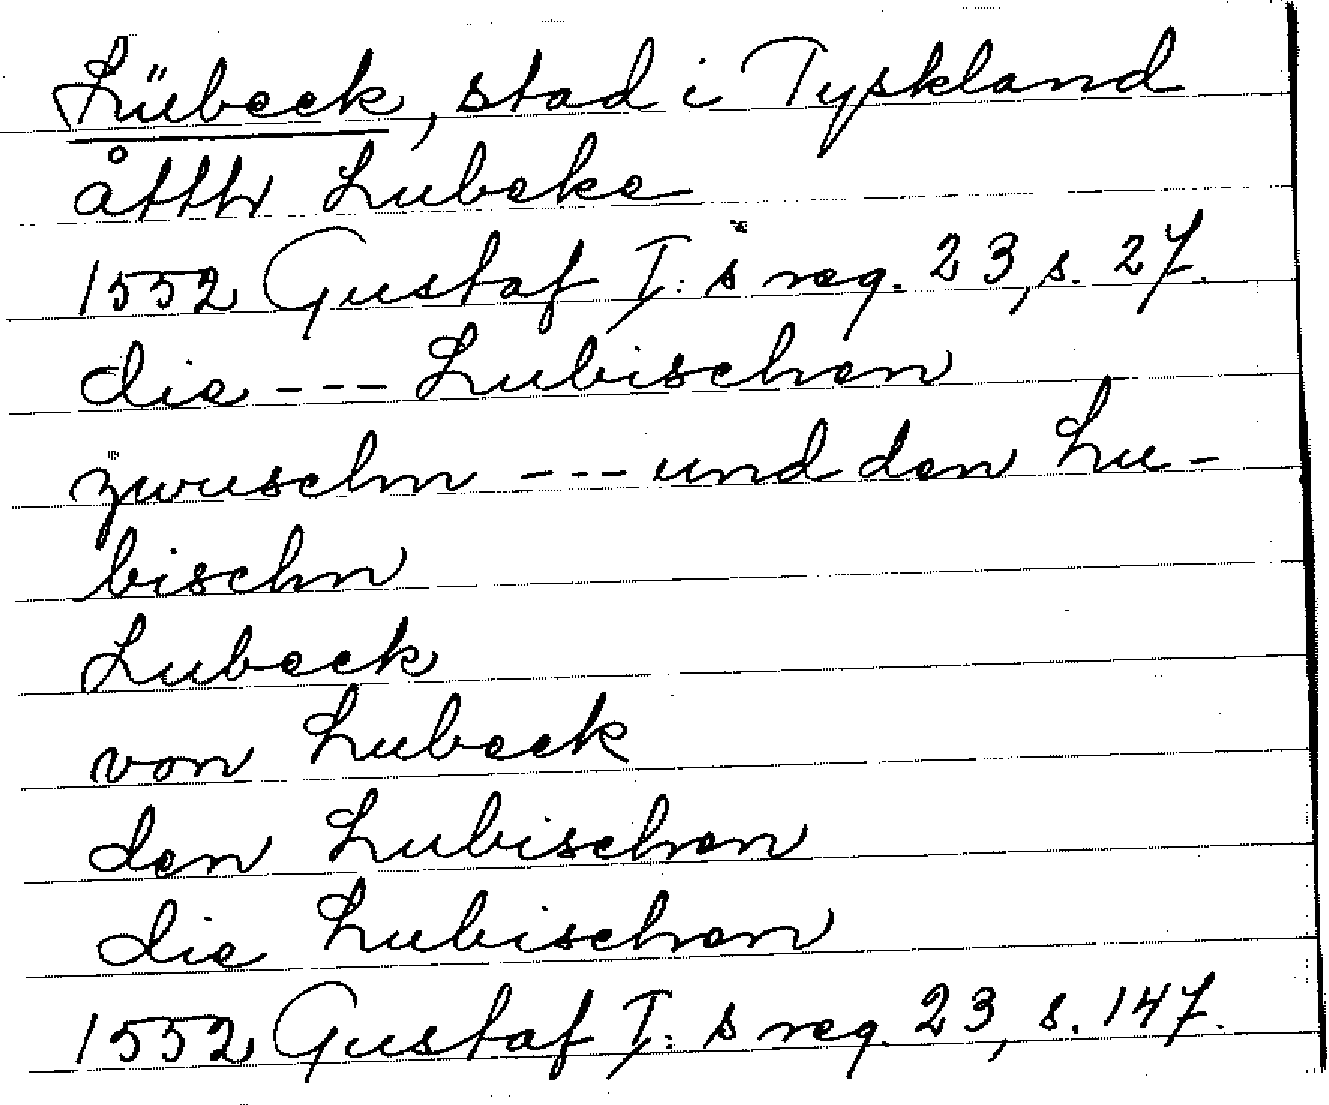 Lübeck, stad i Tyskland
åtth Lubeke
1552 Gustaf I:s reg. 23, s. 27.
die --- Lubischen
zwuschn --- und den Lu-
bischn
Lubeck
von Lubeck
den Lubischen
die Lubischen
1552 Gustaf I:s reg. 23, s. 147.